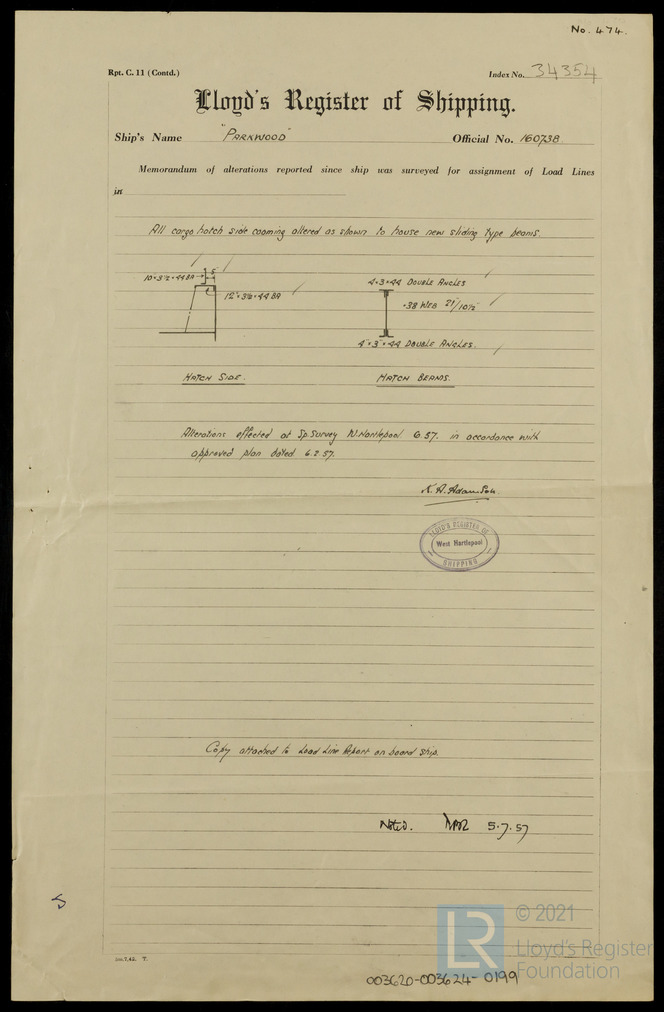 No. 474.
Rpt. C. 11 (Contd.)
Index No. 34354
Lloyd's Register of Shipping.
Ship's Name "PARKWOOD" Official No. 160738
Memorandum of alterations reported since ship was surveyed for assignment of Load Lines
in
All cargo hatch side coaming altered as shown to house new sliding type beams.
5
10" × 3½ × .44 BA
12" × 3½ × .44 BA
4 × 3 × .44 DOUBLE ANGLES
.38 WEB 21"/10½"
4" × 3" × .44 DOUBLE ANGLES.
HATCH SIDE. HATCH BEAMS.
Alterations effected at Sp. Survey W. Hartlepool 6.57. in accordance with
approved plan dated 6.2.57.
K. A. Adamson.
LLOYD'S REGISTER OF
West Hartlepool
SHIPPING
Copy attached to Load Line Report on board ship.
Noted. 5.7.57
S
T.
LR © 2021
Lloyd's Register
Foundation
003620-003624-0199